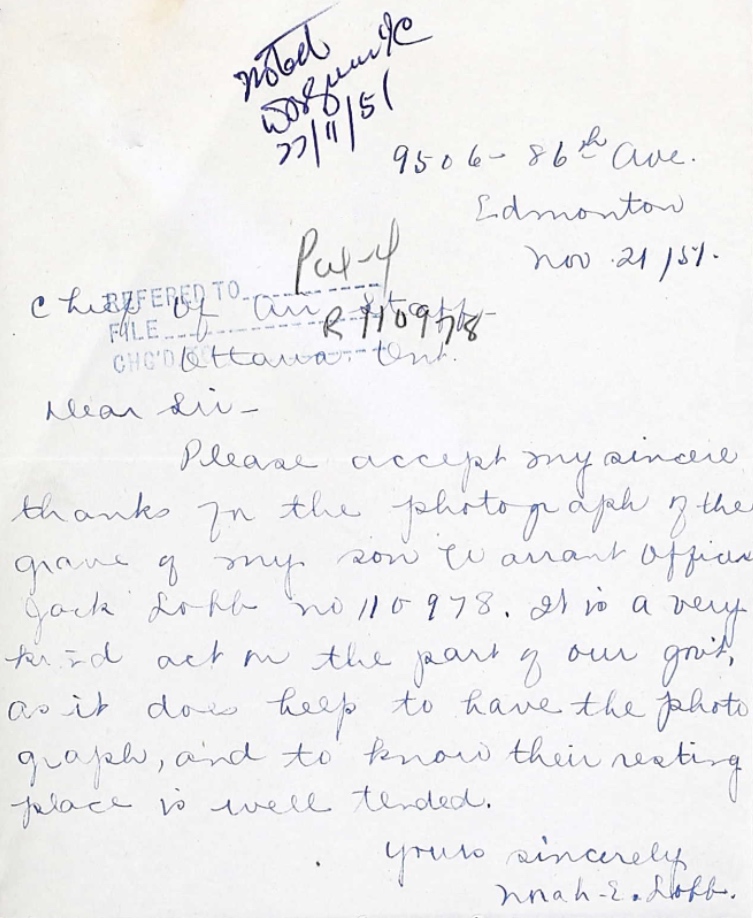 noted
22/11/51
9506- 86th Ave.
Edmonton
Nov. 21/51.
Pax-4
REFERED TO
Chief of Air Staff-
FILE R 110978
CHG'D
Ottawa. Ont.
Dear Sir-
Please accept my sincere
thanks for the photograph of the
grave of my son Warrant Officer
Jack Lobb no 110978. It is a very
kind act on the part of our gov't,
as it does help to have the photo
graph, and to know their resting
place is well tended.
Yours sincerely
Norah-E. Lobb.